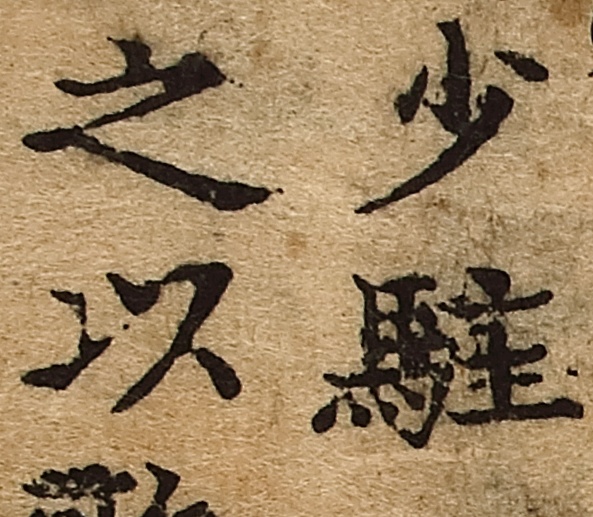 少駐
之以